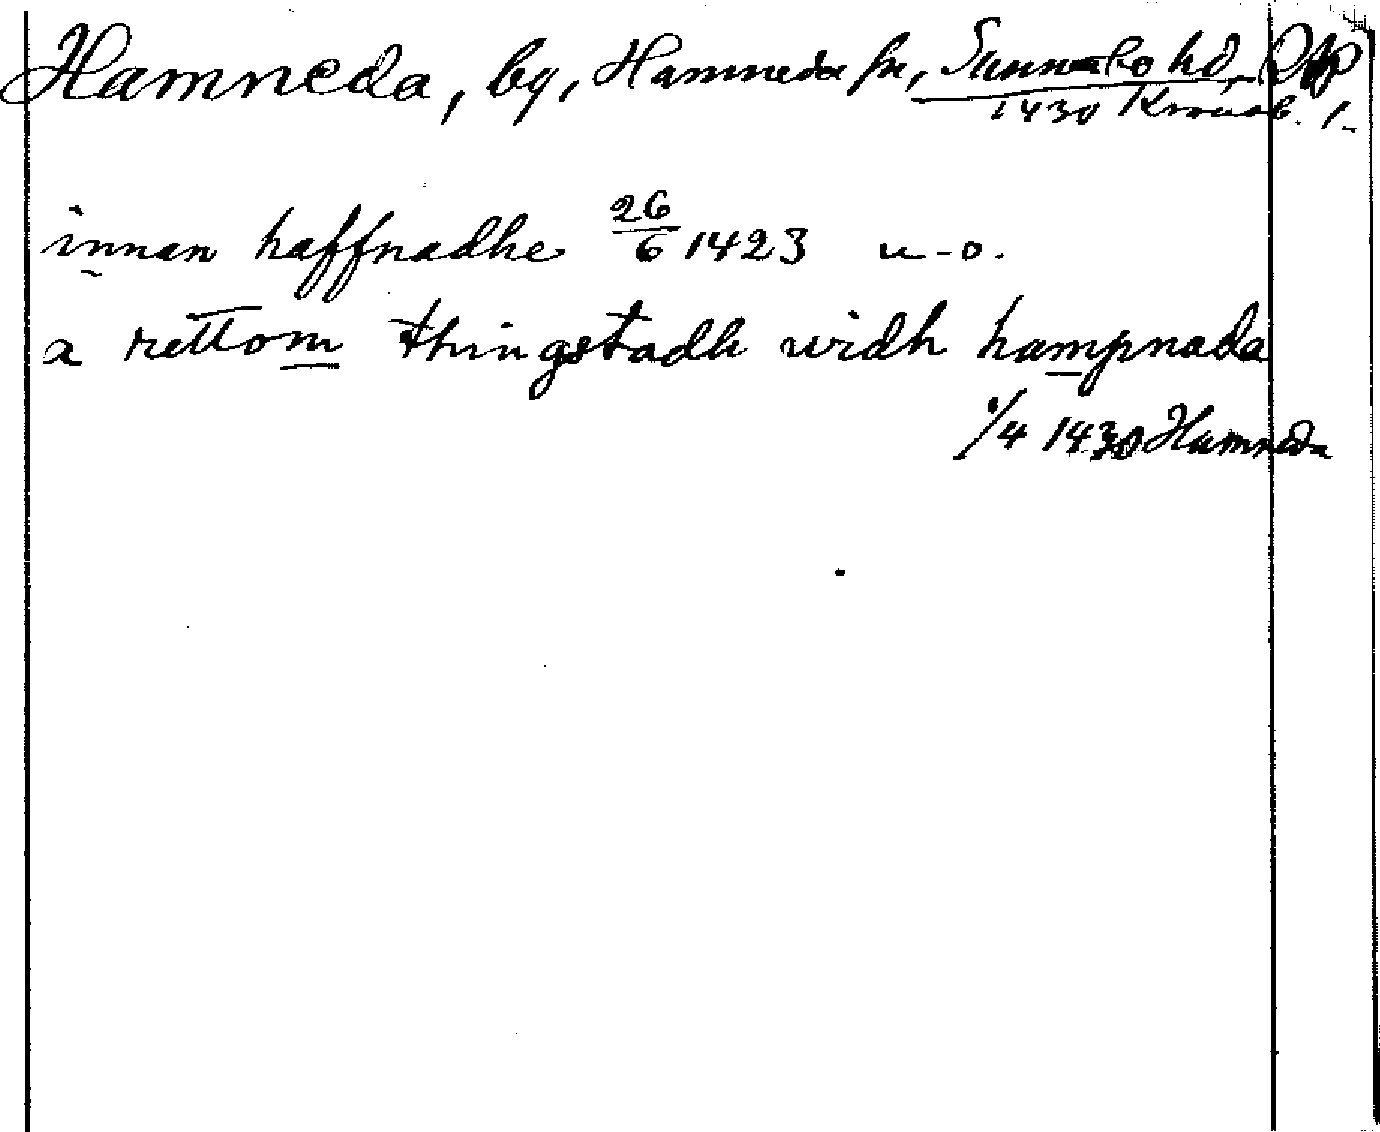 Hamneda, by, Hamneda sn, Sunnerbo hd,
1430 Kronob. l.
innan haffnadhe 26/6 1423 u-o.
a rettom thingstadh widh hampnada
1/4 1430 Hamneda